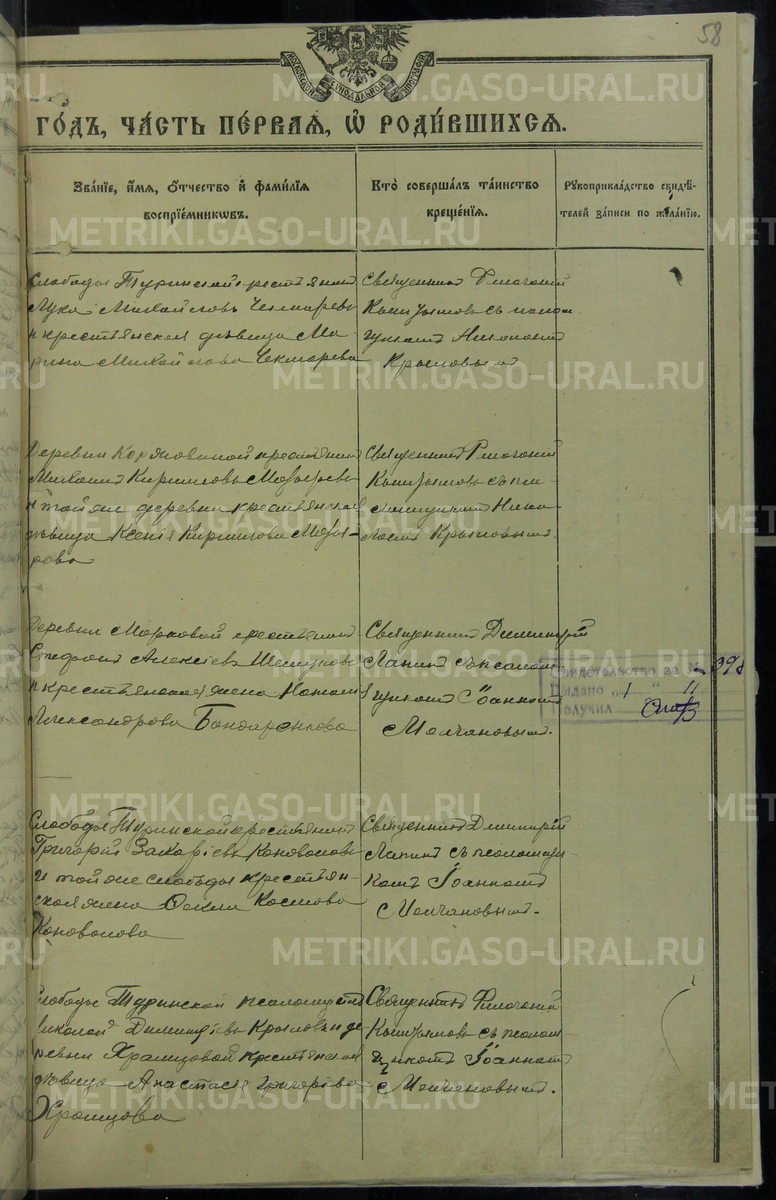 58
МОСКОВСКОЙ СѴНОДАЛЬНОЙ ТИПОГРАФІИ
ГО́ДЪ, ЧА́СТЬ ПЕ́РВАѦ, Ѡ҆ РОДИ́ВШИХСѦ.
Зва́нїе, и҆́мѧ, ѻ҆́тчество и҆ фами́лїѧ
воспрїе́мникѡвъ.
Кто̀ соверша́лъ та́инство
креще́нїѧ.
Рꙋкоприкла́дство свидѣ́-
телей за́писи по жела́нїю.
Слободы Туринской крестьянинъ
Лука Михайловъ Чекмаревъ
и крестьянская дѣвица Ма-
рина Михайлова Чекмарева
Священникъ
съ псалом
щикомъ
Крыловымъ
Деревни крестьянинъ
Михаилъ Кирилловъ
и той же деревни крестьянская
дѣвица Ксенія Кириллова
рова
Священникъ
съ пса
ломщикомъ Нико
лаемъ Крыловымъ.
Деревни Марковой крестьянинъ
Стефанъ Алексѣевъ
и крестьянская жена
Александрова Бондаренкова
Священникъ Димитрій
Лапинъ съ псалом
щикомъ Іоанномъ
Молчановымъ.
Свидетельство за №
Выдано 1 " 11
Получил
Слободы Туринской крестьянинъ
Григорій Захаріевъ Коновалов
и той же слободы крестьян-
ская жена Ѳекла Космова
Коновалова
Священникъ Димитрій
Лапинъ съ псаломщи
комъ Іоанномъ
Молчановымъ.
Слободы Туринской псаломщикъ
Николай Димитріевъ Крыловъ и де
ревни Храмцовой крестьянская
дѣвица Анастасія Григорьева
Храмцова
Священникъ
съ псалом
щикомъ Іоанномъ
Молчановымъ.
METRIKI.GASO-URAL.RU